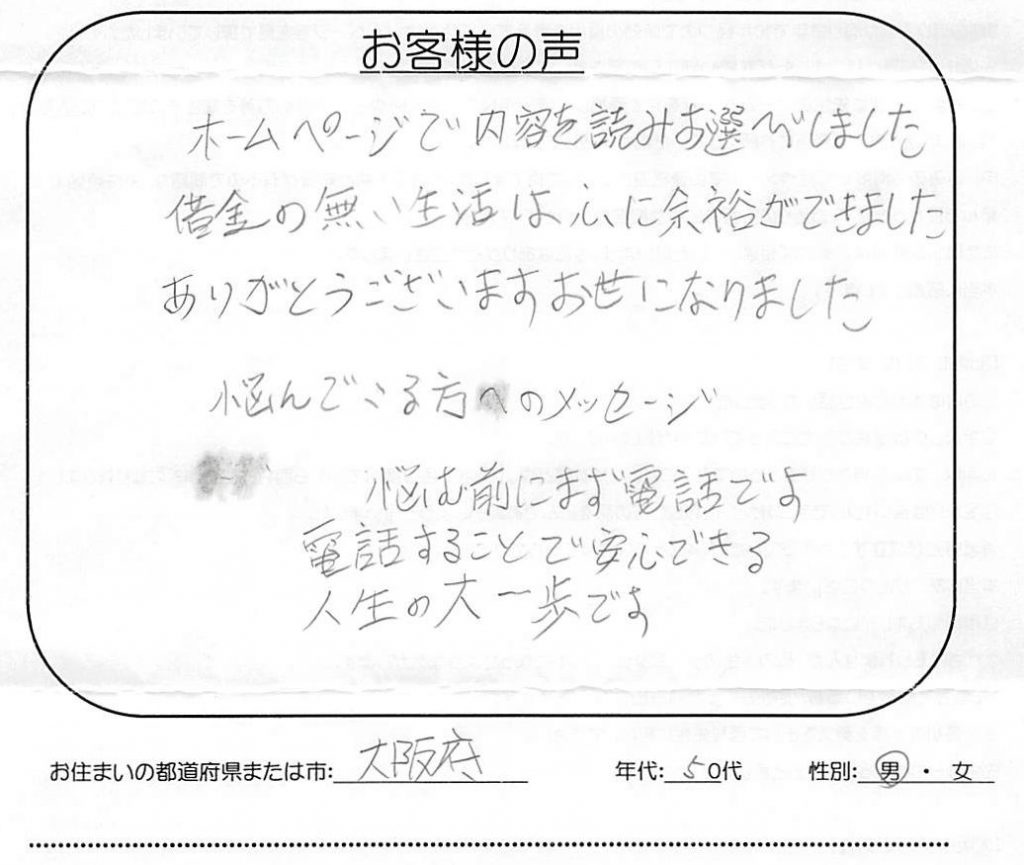 お客様の声
ホームページで内容を読みお選びしました
借金の無い生活は、心に余裕ができました
ありがとうございますお世になりました
悩んでいる方のメッセージ
悩む前にまず電話です
電話することで安心できる
人生の大一歩です
お住まいの都道府県または市: 大阪府 年代: 50代 性別: 男・女